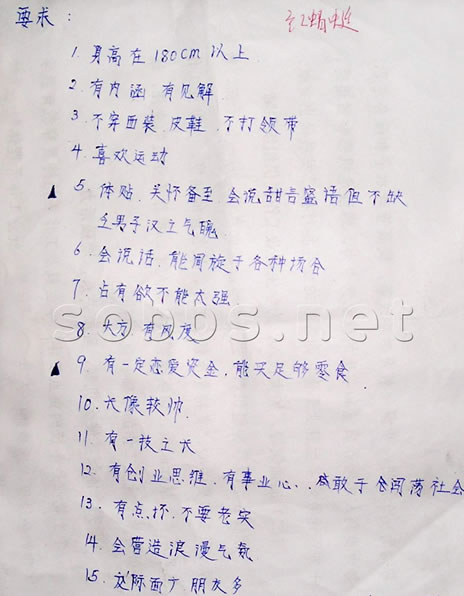 要求：
红蜻蜓
1. 身高在180cm以上
2. 有内涵 有见解
3. 不穿西装 皮鞋 不打领带
4. 喜欢运动
▲ 5. 体贴.关怀备至.会说甜言蜜语但不缺
乏男子汉之气魄
6. 会说话.能周旋于各种场合
7. 占有欲不能太强
8. 大方 有风度
sobbs.net
▲ 9. 有一定恋爱资金.能买足够零食
10. 长像较帅
11. 有一技之长
12. 有创业思维.有事业心.敢于闯荡社会
13. 有点坏.不要老实
14. 会营造浪漫气氛
15. 交际面广 朋友多